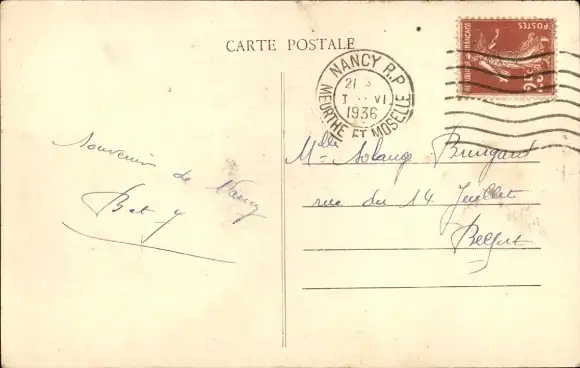 CARTE POSTALE
NANCY R.P
21
1 VI
1936
MEURTHE ET MOSELLE
REPUBLIQUE FRANÇAISE
POSTES
25c
Souvenir de Nancy
Mlle Solange
rue du 14 Juillet
Belfort